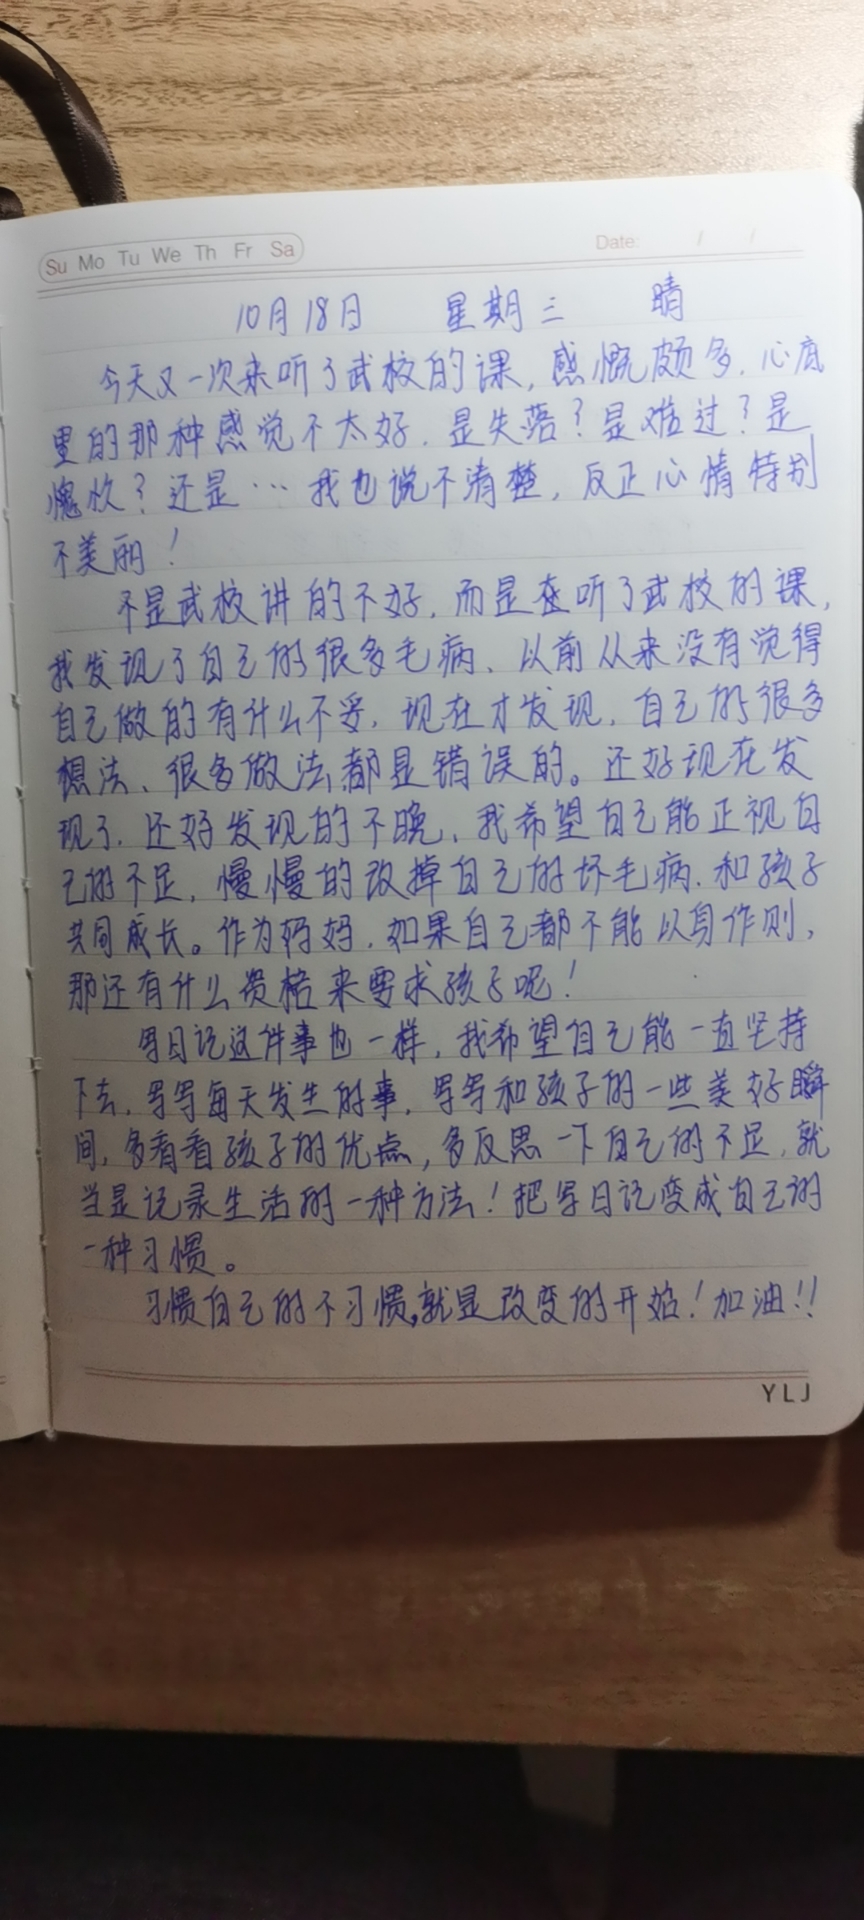 Su Mo Tu We Th Fr Sa
Date: / /
10月18日 星期三 晴
今天又一次来听了武校的课，感慨颇多，心底
里的那种感觉不太好，是失落？是难过？是
愧疚？还是…我也说不清楚，反正心情特别
不美丽！
不是武校讲的不好，而是在听了武校的课，
我发现了自己的很多毛病、以前从来没有觉得
自己做的有什么不妥，现在才发现，自己的很多
想法、很多做法都是错误的。还好现在发
现了，还好发现的不晚，我希望自己能正视自
己的不足，慢慢的改掉自己的坏毛病，和孩子
共同成长。作为妈妈，如果自己都不能以身作则，
那还有什么资格来要求孩子呢！
写日记这件事也一样，我希望自己能一直坚持
下去，写写每天发生的事，写写和孩子的一些美好瞬
间，多看看孩子的优点，多反思一下自己的不足，就
当是记录生活的一种方法！把写日记变成自己的
一种习惯。
习惯自己的不习惯，就是改变的开始！加油！！
YLJ